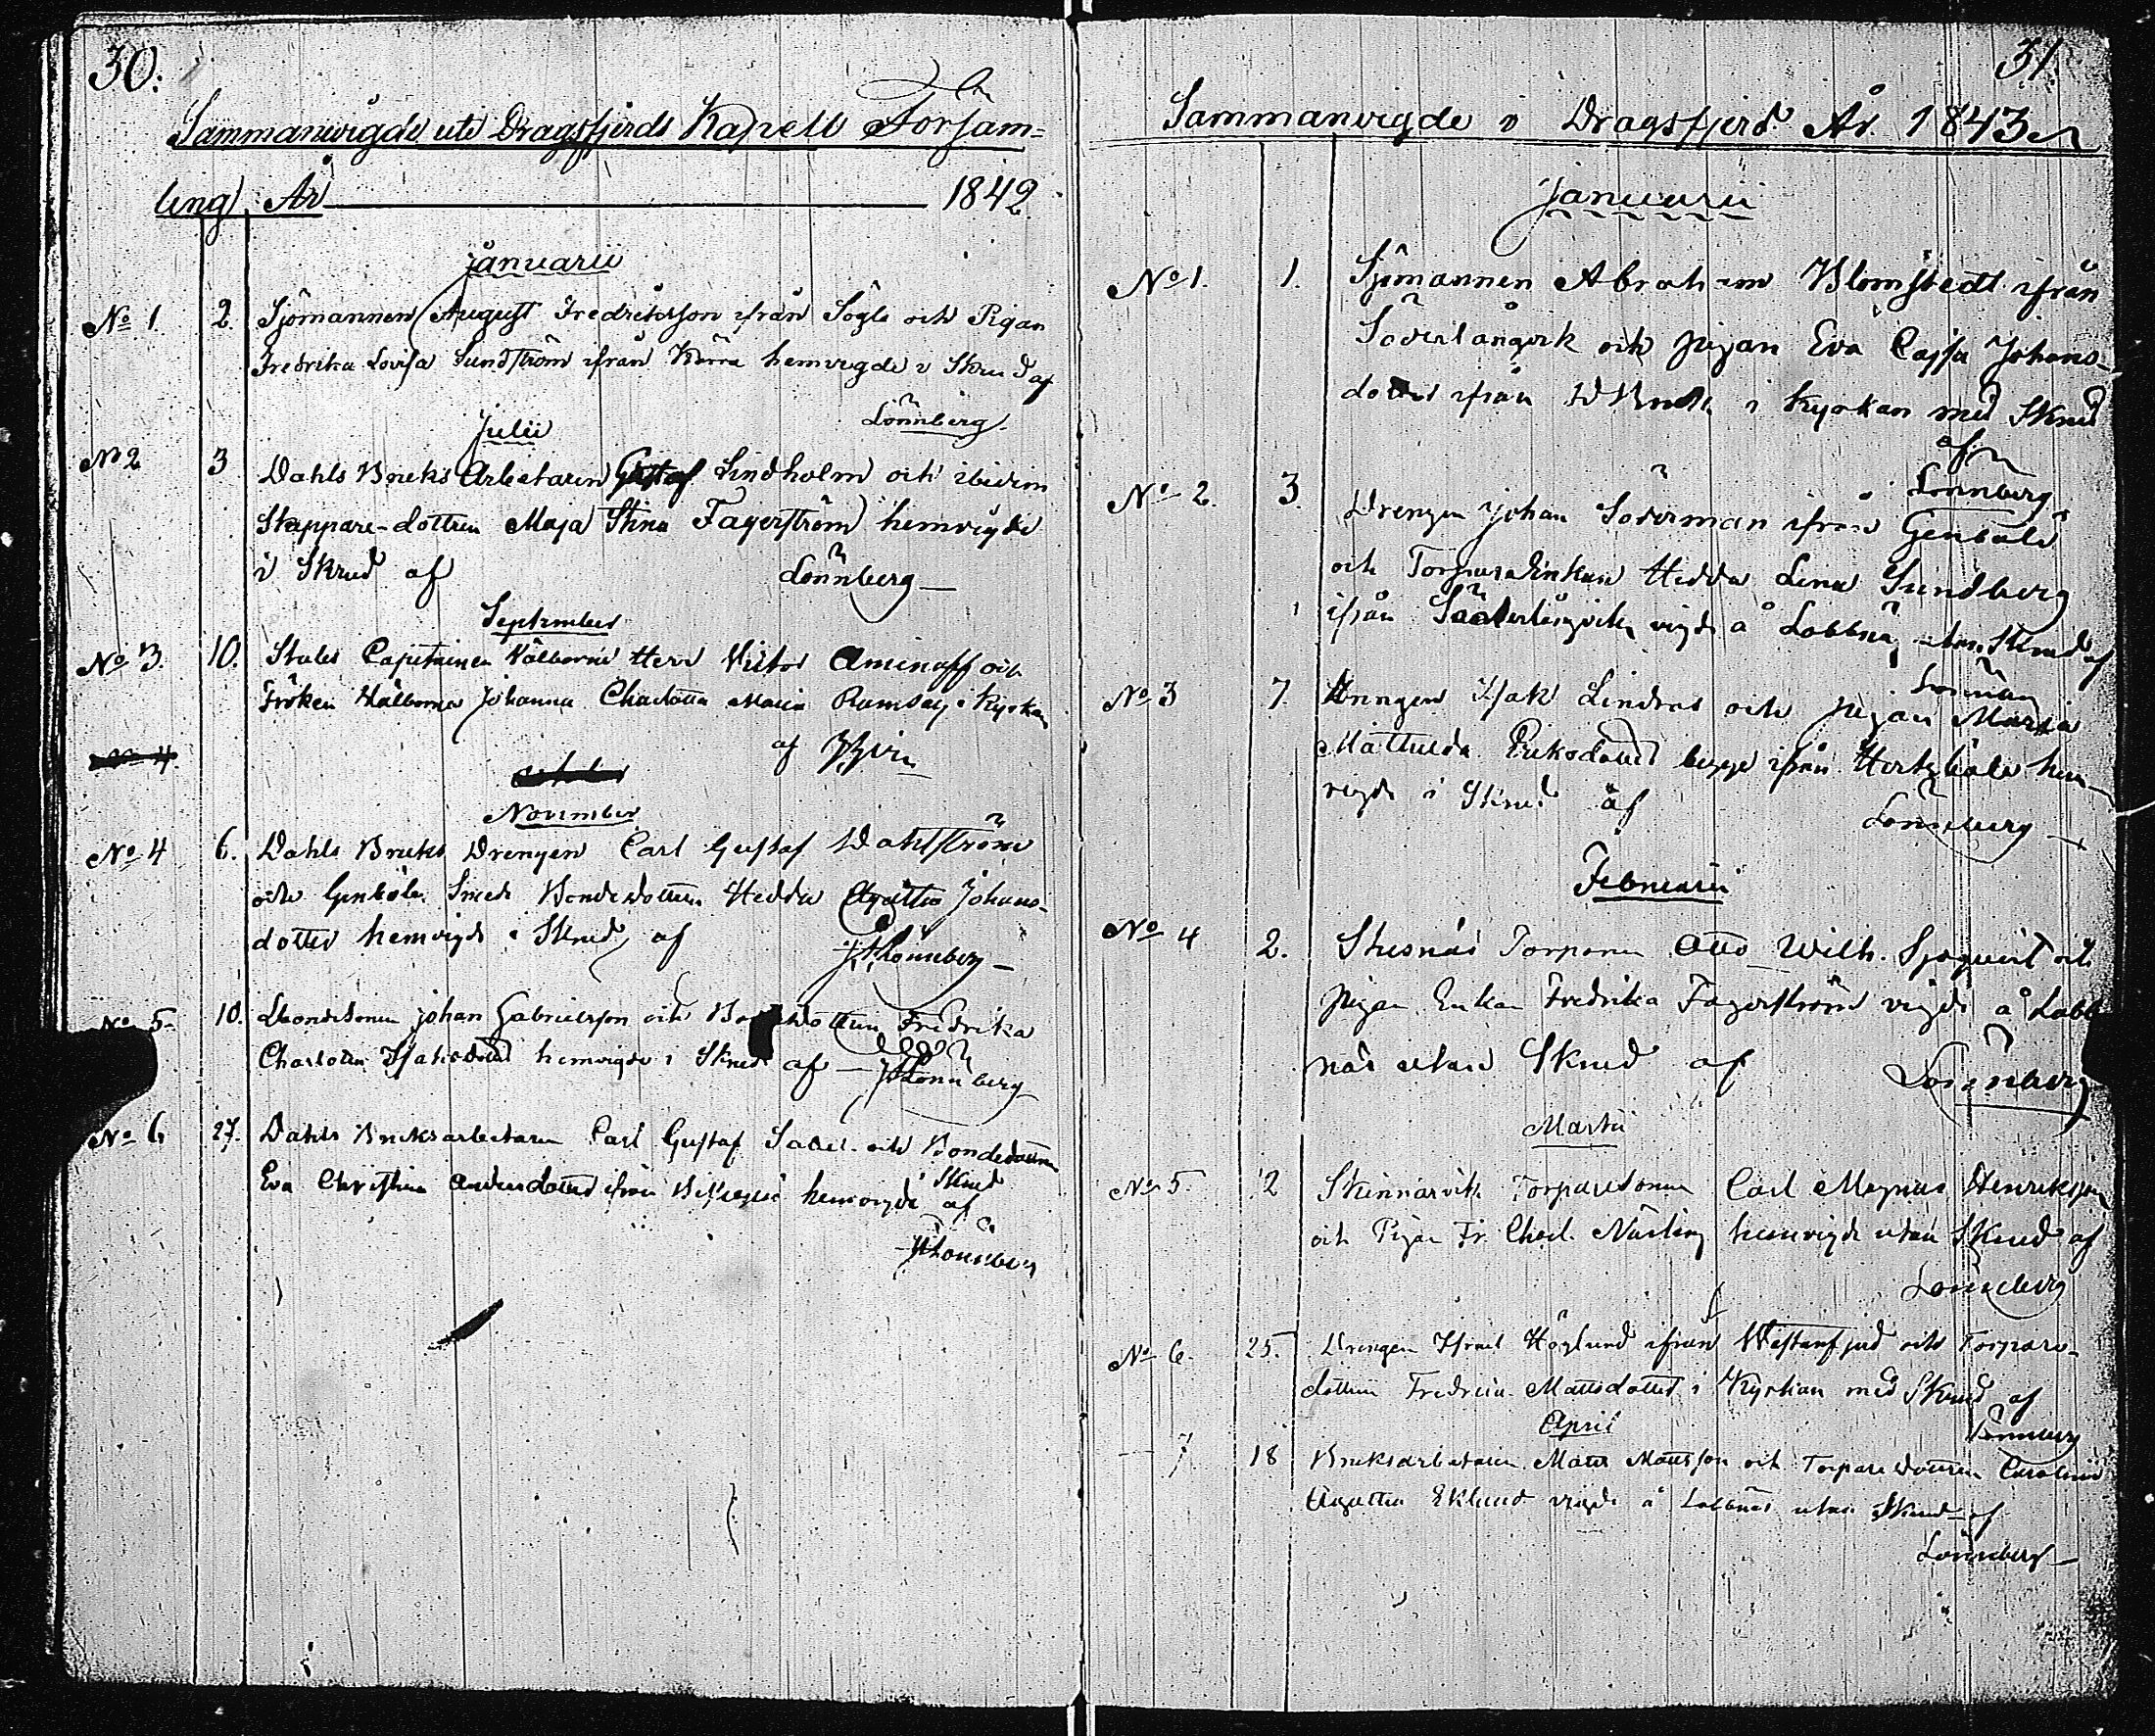 30.
Sammanvigde uti Dragsfjerds Kapell Församling År 1842
januarii
No 1. 2. Sjömannen August Fredriksson ifrån Sögle och Pigan
Fredrika Lovisa Sundström ifrån Kärra hemvigde i Skrud af
Lönnberg
Julii
No 2 3 Dahls Bruks Arbetaren Gustaf Lindholm och ibidem
Skeppare-dottren Maja Stina Fagerström hemvigde
i Skrud af Lönnberg
September
No 3. 10. Stabs Capitainen Välborne Herr Victor Aminoff och
Fröken Välborna Johanna Charlotta Maria Ramsay i Kyrkan
af
November
No 4 6. Dahls Bruks Drengen Carl Gustaf Dahlström
och Genböle Smeds Bondedottren Hedda Agatha Johans-
dotter hemvigde i Skrud af Lönnberg
No 5. 10. Bondesonen Johan Gabrielsson och Bondedottren Fredrika
Charlotta Isaksdotter hemvigde i Skrud af Lönnberg
No 6 27. Dahls Bruksarbetaren Carl Gustaf och Bondedottren
Eva Christina Andersdotter ifrån hemvigde i Skrud af
Lönnberg
31
Sammanvigde i Dragsfjerd År 1843
Januarii
No 1. 1. Sjömannen Abraham Blomstedt ifrån
Söderlångvik och pigan Eva Cajsa Johans-
dotter ifrån i Kyrkan med Skrud
af
Lönnberg
No 2. 3. Drengen Johan Söderman ifrån Genböle
och Torpareenkan Hedda Lena Sundberg
ifrån Söderlångvik vigde å Labbnäs utan Skrud af
Lönnberg
No 3 7. Drengen Isak Lindros och pigan Maria
Mathilda Eriksdotter begge ifrån Hertsböle hem
vigde i Skrud af Lönnberg
Februarii
No 4 2. Stusnäs Torparen Otto Wilh. Sjöqvist och
pigan Enkan Fredrika Fagerström vigde å Labb
näs utan Skrud af Lönnberg
Martii
No 5. 2 Skinnarvik Torparesonen Carl Magnus Henriksson
och Pigan Fr. Charl. Närling hemvigde utan Skrud af
Lönnberg
No 6. 25. Drengen Israel Höglund ifrån Westanfjerd och Torpare-
dottren Fredrica Mattsdotter i Kyrkan med Skrud af
Lönnberg
April
7 18 Bruksarbetaren Matts Mattsson och Torparedottren Carolina
Agatha Eklund vigde å Labbnäs utan Skrud af
Lönnberg